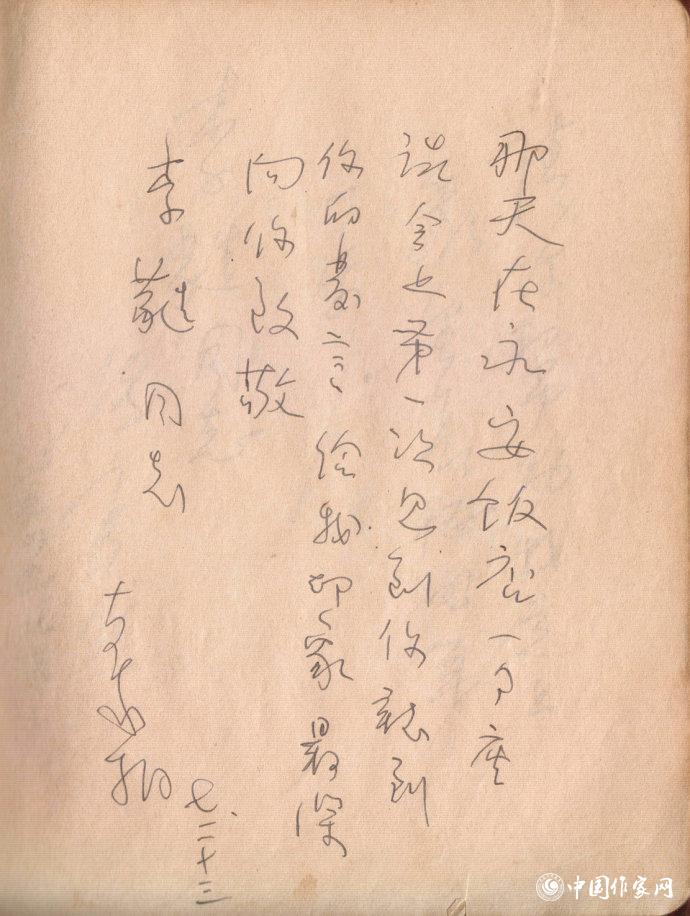 那天在永安饭店一个座
谈会上第一次见到你聽到
你的發言给我印象最深
向你致敬
李蕤同志
袁水拍
七.二十三
中国作家网